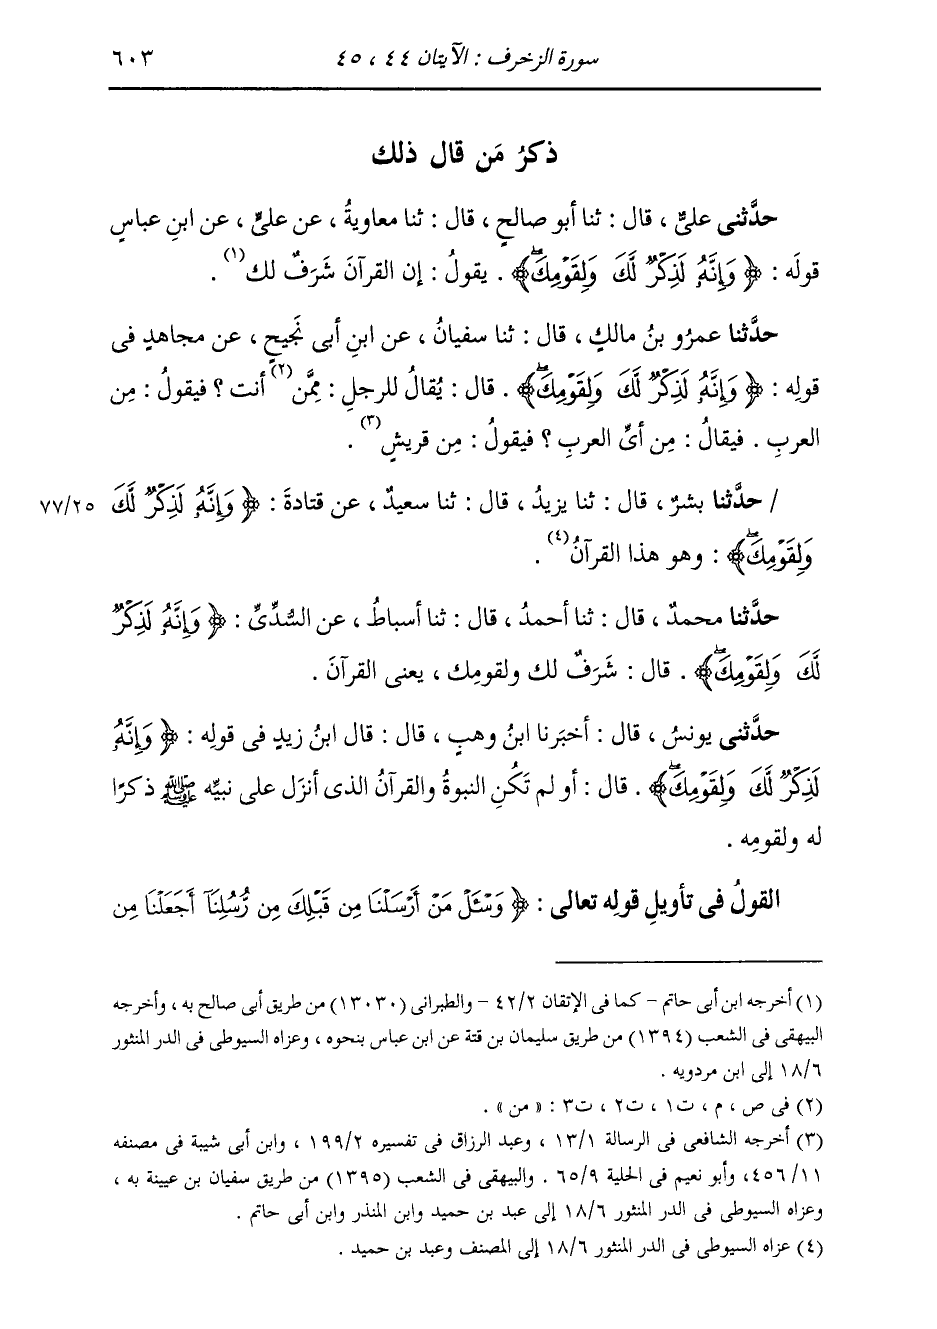 سورة الزخرف : الآيتان ٤٤ ، ٤٥
٦٠٣
ذكرُ مَن قال ذلك
حدَّثنى علىٌّ ، قال : ثنا أبو صالحٍ ، قال : ثنا معاويةُ ، عن علىٍّ ، عن ابنِ عباسٍ
قولَه : ﴿ وَإِنَّهُۥ لَذِكْرٌ لَّكَ وَلِقَوْمِكَۖ ﴾ . يقولُ : إن القرآنَ شَرَفٌ لك(١) .
حدَّثنا عمرُو بنُ مالكٍ ، قال : ثنا سفيانُ ، عن ابنِ أبى نَجيحٍ ، عن مجاهدٍ فى
قولِه : ﴿ وَإِنَّهُۥ لَذِكْرٌ لَّكَ وَلِقَوْمِكَۖ ﴾ . قال : يُقالُ للرجلِ : مِمَّن(٢) أنت ؟ فيقولُ : مِن
العربِ . فيقالُ : مِن أىِّ العربِ ؟ فيقولُ : مِن قريشٍ(٣) .
/ حدَّثنا بشرٌ ، قال : ثنا يزيدُ ، قال : ثنا سعيدٌ ، عن قتادةَ : ﴿ وَإِنَّهُۥ لَذِكْرٌ لَّكَ
٧٧/٢٥
وَلِقَوْمِكَۖ ﴾ : وهو هذا القرآنُ(٤) .
حدَّثنا محمدٌ ، قال : ثنا أحمدُ ، قال : ثنا أسباطُ ، عن السُّدِّىِّ : ﴿ وَإِنَّهُۥ لَذِكْرٌ
لَّكَ وَلِقَوْمِكَۖ ﴾ . قال : شَرَفٌ لك ولقومِك ، يعنى القرآنَ .
حدَّثنى يونسُ ، قال : أخبَرنا ابنُ وهبٍ ، قال : قال ابنُ زيدٍ فى قولِه : ﴿ وَإِنَّهُۥ
لَذِكْرٌ لَّكَ وَلِقَوْمِكَۖ ﴾ . قال : أو لم تَكُنِ النبوةُ والقرآنُ الذى أنزَل على نبيِّه ﷺ ذكرًا
له ولقومِه .
القولُ فى تأويلِ قولِه تعالى : ﴿ وَسْـَٔلْ مَنْ أَرْسَلْنَا مِن قَبْلِكَ مِن رُّسُلِنَآ أَجَعَلْنَا مِن
(١) أخرجه ابن أبى حاتم – كما فى الإتقان ٤٢/٢ – والطبرانى (١٣٠٣٠) من طريق أبى صالح به ، وأخرجه
البيهقى فى الشعب (١٣٩٤) من طريق سليمان بن قتة عن ابن عباس بنحوه ، وعزاه السيوطى فى الدر المنثور
١٨/٦ إلى ابن مردويه .
(٢) فى ص ، م ، ت١ ، ت٢ ، ت٣ : « من » .
(٣) أخرجه الشافعى فى الرسالة ١٣/١ ، وعبد الرزاق فى تفسيره ١٩٩/٢ ، وابن أبى شيبة فى مصنفه
٤٥٦/١١، وأبو نعيم فى الحلية ٦٥/٩ . والبيهقى فى الشعب (١٣٩٥) من طريق سفيان بن عيينة به ،
وعزاه السيوطى فى الدر المنثور ١٨/٦ إلى عبد بن حميد وابن المنذر وابن أبى حاتم .
(٤) عزاه السيوطى فى الدر المنثور ١٨/٦ إلى المصنف وعبد بن حميد .